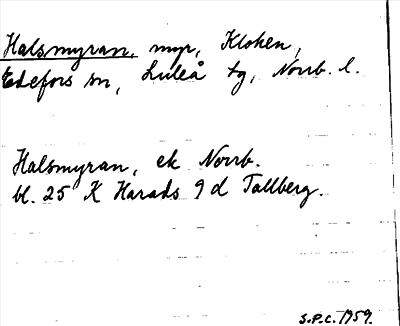 Halsmyran, myr, Kloken,
Edefors sn, Luleå tg, Norrb. l.
Halsmyran, ek Norrb.
bl. 25 K Harads 9 d Tallberg.
S.P.C. 1959.